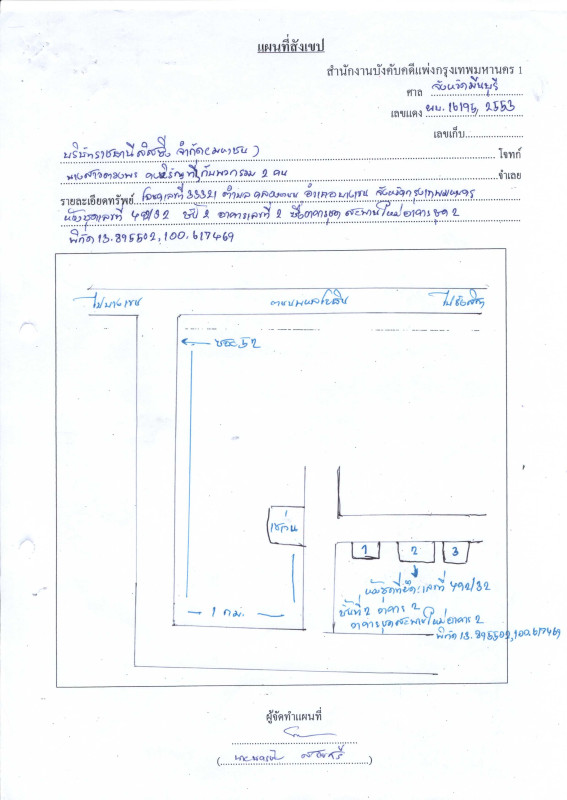 แผนที่สังเขป
สำนักงานบังคับคดีแพ่งกรุงเทพมหานคร 1
ศาล จังหวัดมีนบุรี
เลขแดง ผบ. 16195, 2553
เลขเก็บ
บริษัทราชธานีลิสซิ่ง จำกัด(มหาชน) โจทก์
นางสาวดวงพร กับพวกรวม 2 คน จำเลย
รายละเอียดทรัพย์ โฉนดเลขที่ 33321 ตำบล คลองถนน อำเภอ บางเขน จังหวัดกรุงเทพมหานคร
ห้องชุดเลขที่ 492/32 ชั้น 2 อาคารเลขที่ 2 ชื่ออาคารชุด สะพานใหม่อาคารชุด 2
พิกัด 13.895502,100.617469
ไปบางเขน ถนนพหลโยธิน ไปรังสิต
← ซอย 52
เซเว่น
1 2 3
ห้องชุดที่ยึด: เลขที่ 492/32
ชั้นที่ 2 อาคาร 2
อาคารชุดสะพานใหม่อาคาร 2
พิกัด 13.895502,100.617469
1 กม.
ผู้จัดทำแผนที่